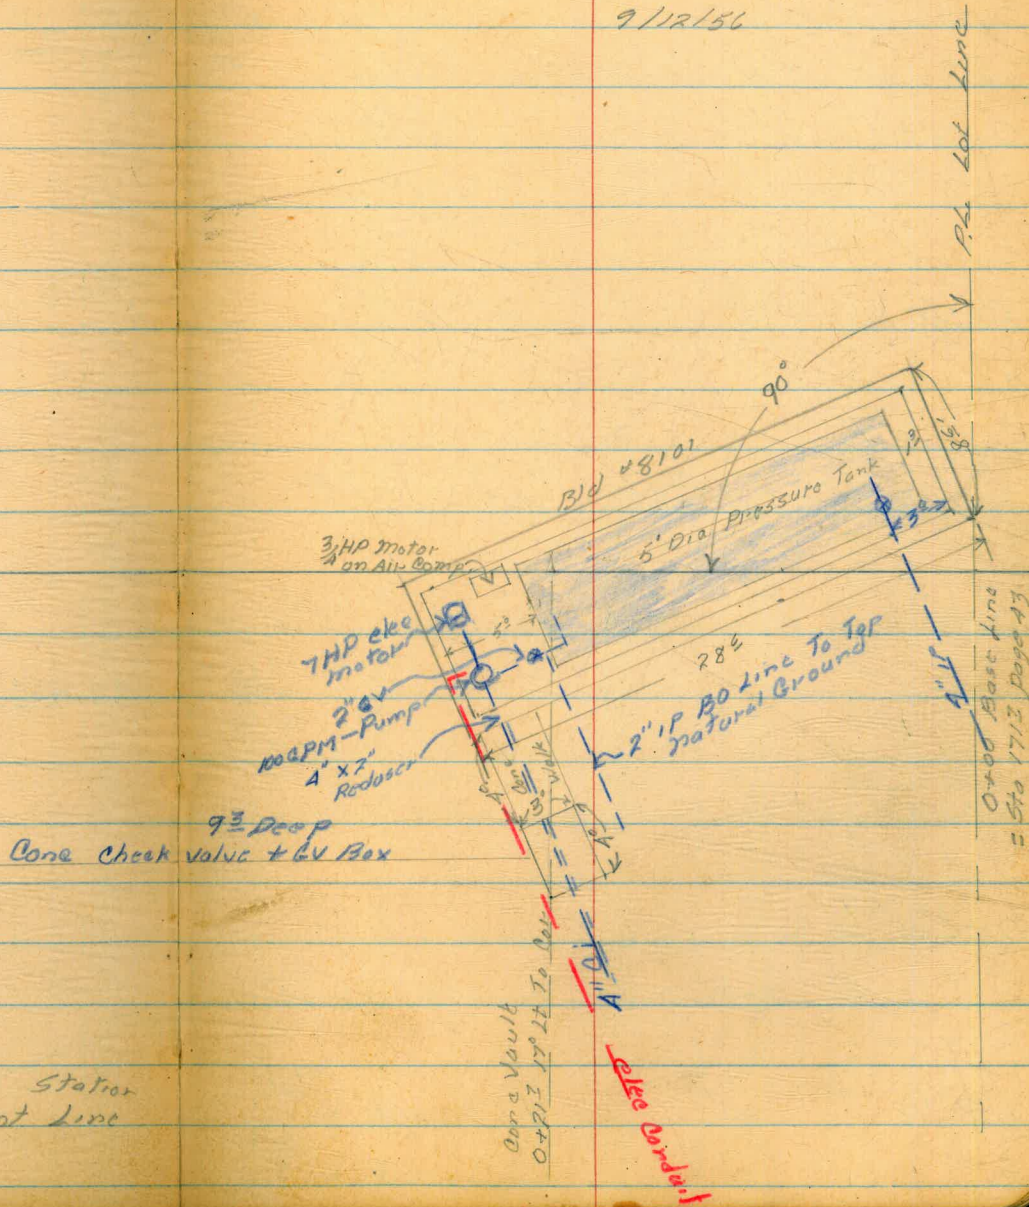 9/12/56
P.L. Lot Line
90°
Bld #8101
8 6'
5' Dia Pressure Tank
3/4 HP Motor
on Air Comp
7 HP elec
Motor
2" GV
100 GPM - Pump
4" x 2"
Reduser
28 6
2" IP BO Line To Top
Natural Ground
4" IP
0+00 Base Line
= Sta 1712 Page 43
Conc
Walk
9 3 Deep
Conc Check valve + GV Box
4" CI
Conc Vault
To Cor
elec Conduit
Station
nt Line